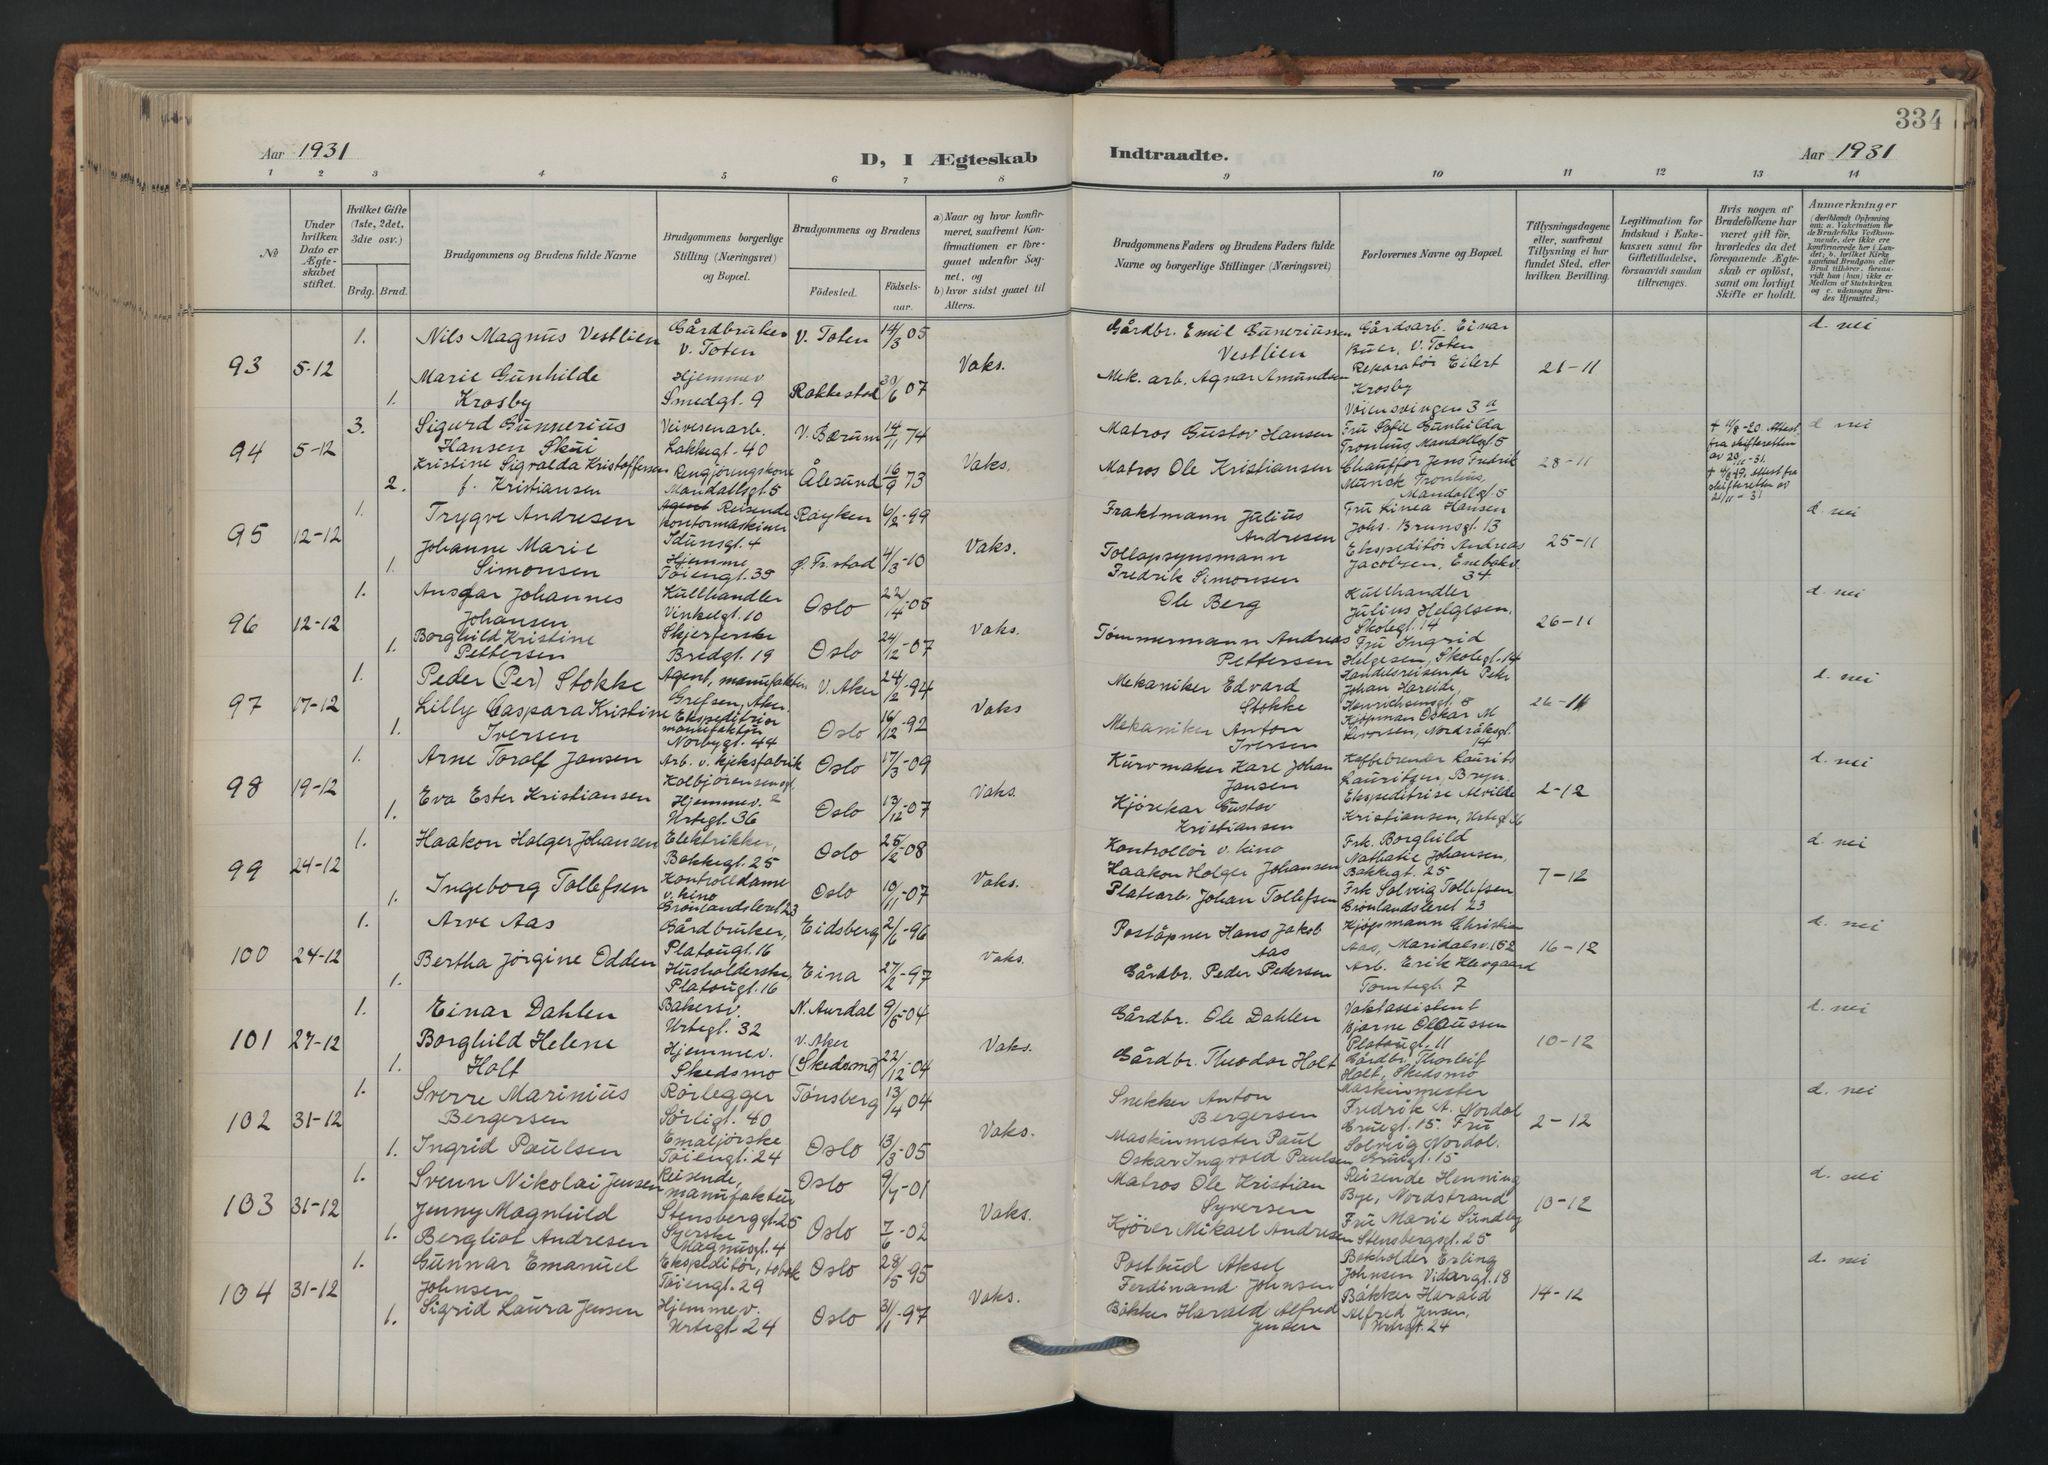 334
Aar 1931
D, I Ægteskab
Indtraadte.
Aar 1931
1 2 3 4 5 6 7 8 9 10 11 12 13 14
№
Under hvilken Dato er Ægteskabet stiftet.
Hvilket Gifte (1ste, 2det, 3die osv.)
Brdg. Brud.
Brudgommens og Brudens fulde Navne
Brudgommens borgerlige Stilling (Næringsvei) og Bopæl.
Brudgommens og Brudens
Födested.
Födselsaar.
a) Naar og hvor konfirmeret, saafremt Konfirmationen er foregaaet udenfor Sognet, og
b) hvor sidst gaaet til Alters.
Brudgommens Faders og Brudens Faders fulde Navne og borgerlige Stillinger (Næringsvei)
Forlovernes Navne og Bopæl.
Tillysningsdagene eller, saafremt Tillysning ei har fundet Sted, efter hvilken Bevilling.
Legitimation for Indskud i Enkekassen samt for Giftetilladelse, forsaavidt saadan tiltrænges.
Hvis nogen af Brudefolkene har været gift för, hvorledes da det foregaaende Ægteskab er oplöst, samt om lovligt Skifte er holdt.
Anmærkninger
93 5-12
1. Nils Magnus Vestlien Gårdbruker V. Toten V. Toten 14/3 05
1. Marie Gunhilde Krosby Hjemmev Smedgt. 9 Rakkestad 30/6 07
Vaks.
Gårdbr. Emil Guneriussen Vestlien
Mek. arb. Agnar Amundsen
Gårdsarb. Einar Buer, V. Toten
Reparatør Eilert Krosby
Voiensvingen 3 a
21-11
d. nei
94 5-12
3. Sigurd Gunnerius Hansen Skui Veivesenarb. Lakkegt. 40 V. Bærum 14/11 74
2. Kristine Sigvalda Kristoffersen f. Kristiansen Rengjøringskone Mandallsgt. 5 Ålesund 16/9 73
Vaks.
Matros Gustav Hansen
Matros Ole Kristiansen
Fru Sofie Gunhilda Tronhus, Mandallsgt. 5
Chauffør Jens Fredrik Munck Tronhus, Mandallsgt. 5
28-11
d. nei
95 12-12
1. Trygve Andresen Agent Reisende kontormaskiner Idunsgt. 4 Røyken 6/2-99
1. Johanne Marie Simonsen Hjemme Tøiengt. 35 Ø. Fr.stad 4/3-10
Vaks.
Fraktmann Julius Andresen
Tollopsynsmann Fredrik Simonsen
Fru Linea Hansen Johs. Brunsgt. 13
Ekspeditør Andreas Jacobsen, Enebakv. 34
25-11
d. nei
96 12-12
1. Ansgar Johannes Johansen Kullhandler Vinkelgt. 10 Oslo 22/4-05
1. Borghild Kristine Pettersen Skjerferske Bredgt. 19 Oslo 24/12-07
Vaks.
Ole Berg
Tømmermann Andreas Pettersen
Kullhandler Julius Helgesen, Skolegt. 14
Fru Ingrid Helgesen, Skolegt. 14
26-11
d. nei
97 17-12
1. Peder (Per) Stokke Agent, manufaktur Grefsen, Aker. V. Aker 24/2-94
1. Lilly Caspara Kristine Iversen Ekspeditrise manufaktur Norbygt. 44 Oslo 16/12-92
Vaks
Mekaniker Edvard Stokke
Mekaniker Anton Iversen
Handelsreisende Petr Johan Hareide, Henrichsensgt. 5
Kjøpman Oskar M Nordråksgt. 14
26-11
d. nei
98 19-12
1. Arne Toralf Jansen Arb. v. kjeksfabrik Kolbjørnsensgt. 2 Oslo 17/3-09
1. Eva Ester Kristiansen Hjemmev. Urtegt. 36 Oslo 13/12-07
Vaks.
Kurvmaker Karl Johan Jansen
Kjørekar Gustav Kristiansen
Kaffebrender Laurits Lauritzen, Bryn.
Ekspeditrise Alvilde Kristiansen, Urtegt. 36
2-12
d. nei
99 24-12
1. Haakon Holger Johansen Elektrikker, Bakkegt. 25 Oslo 25/2-08
1. Ingeborg Tollefsen Kontrolldame v. kino Grønlandsleret 23 Oslo 10/11-07
Vaks.
Kontrollør v. kino Haakon Holger Johansen
Platearb. Johan Tollefsen
Frk. Borghild Nathalie Johansen, Bakkegt. 25
Frk Solveig Tollefsen Grønlandsleret 23
7-12
d. nei
100 24-12
1. Arve Aas Gårdbruker, Platougt. 16 Eidsberg 2/6-96
1. Bertha Jørgine Odden Husholderske, Platougt. 16 Eina 27/2-97
Vaks.
Poståpner Hans Jakob Aas
Gårdbr. Peder Pedersen
Kjøpmann Christian Aas, Maridalsv. 152
Arb. Erik Klevgaard Tomtegt. 7
16-12
d. nei
101 27-12
1. Einar Dahlen Bakersv. Urtegt. 32 N. Aurdal 9/5-04
1. Borghild Helene Holt Hjemmev. Skedsmo V. Aker (Skedsmo) 22/12-04
Vaks.
Gårdbr. Ole Dahlen
Gårdbr. Theodor Holt
Vaktassistent Bjarne Olaussen Platougt. 11
Gårdbr. Thorleif Holt, Skedsmo
10-12
d. nei
102 31-12
1. Sverre Marinius Bergersen Rørlegger Sørligt. 40 Tønsberg 13/4-04
1. Ingrid Paulsen Emaljørske Tøiengt. 24 Oslo 13/3-05
Vaks.
Snekker Anton Bergersen
Maskinmester Paul Oskar Ingvald Paulsen
Maskinmester Fredrik A. Nordol Gruegt. 15. Fru Solveig Nordol. Gruegt. 15
2-12
d. nei
103 31-12
1. Svenn Nikolai Jensen Reisende, manufaktur Stensberggt. 25 Oslo 9/7-01
1. Jenny Magnhild Bergliot Andresen Syerske Magnusgt. 4 Oslo 7/6-02
Vaks.
Matros Ole Kristian Syversen
Kjøver Mikael Andresen
Reisende Henning Bye, Nordstrand
Fru Marie Sundby Stensbergsgt. 25
10-12
d. nei
104 31-12
1. Gunnar Emanuel Johnsen Ekspeditør, tobak Tøiengt. 29 Oslo 28/5-95
1. Sigrid Laura Jensen Hjemmev. Urtegt. 24 Oslo 31/1-97
Vaks.
Postbud Aksel Ferdinand Johnsen
Bøkker Harald Alfred Jensen
Bokholder Erling Johnsen Vidargt. 18
Bøkker Harald Alfred Jensen, Urtegt. 24
14-12
d. nei